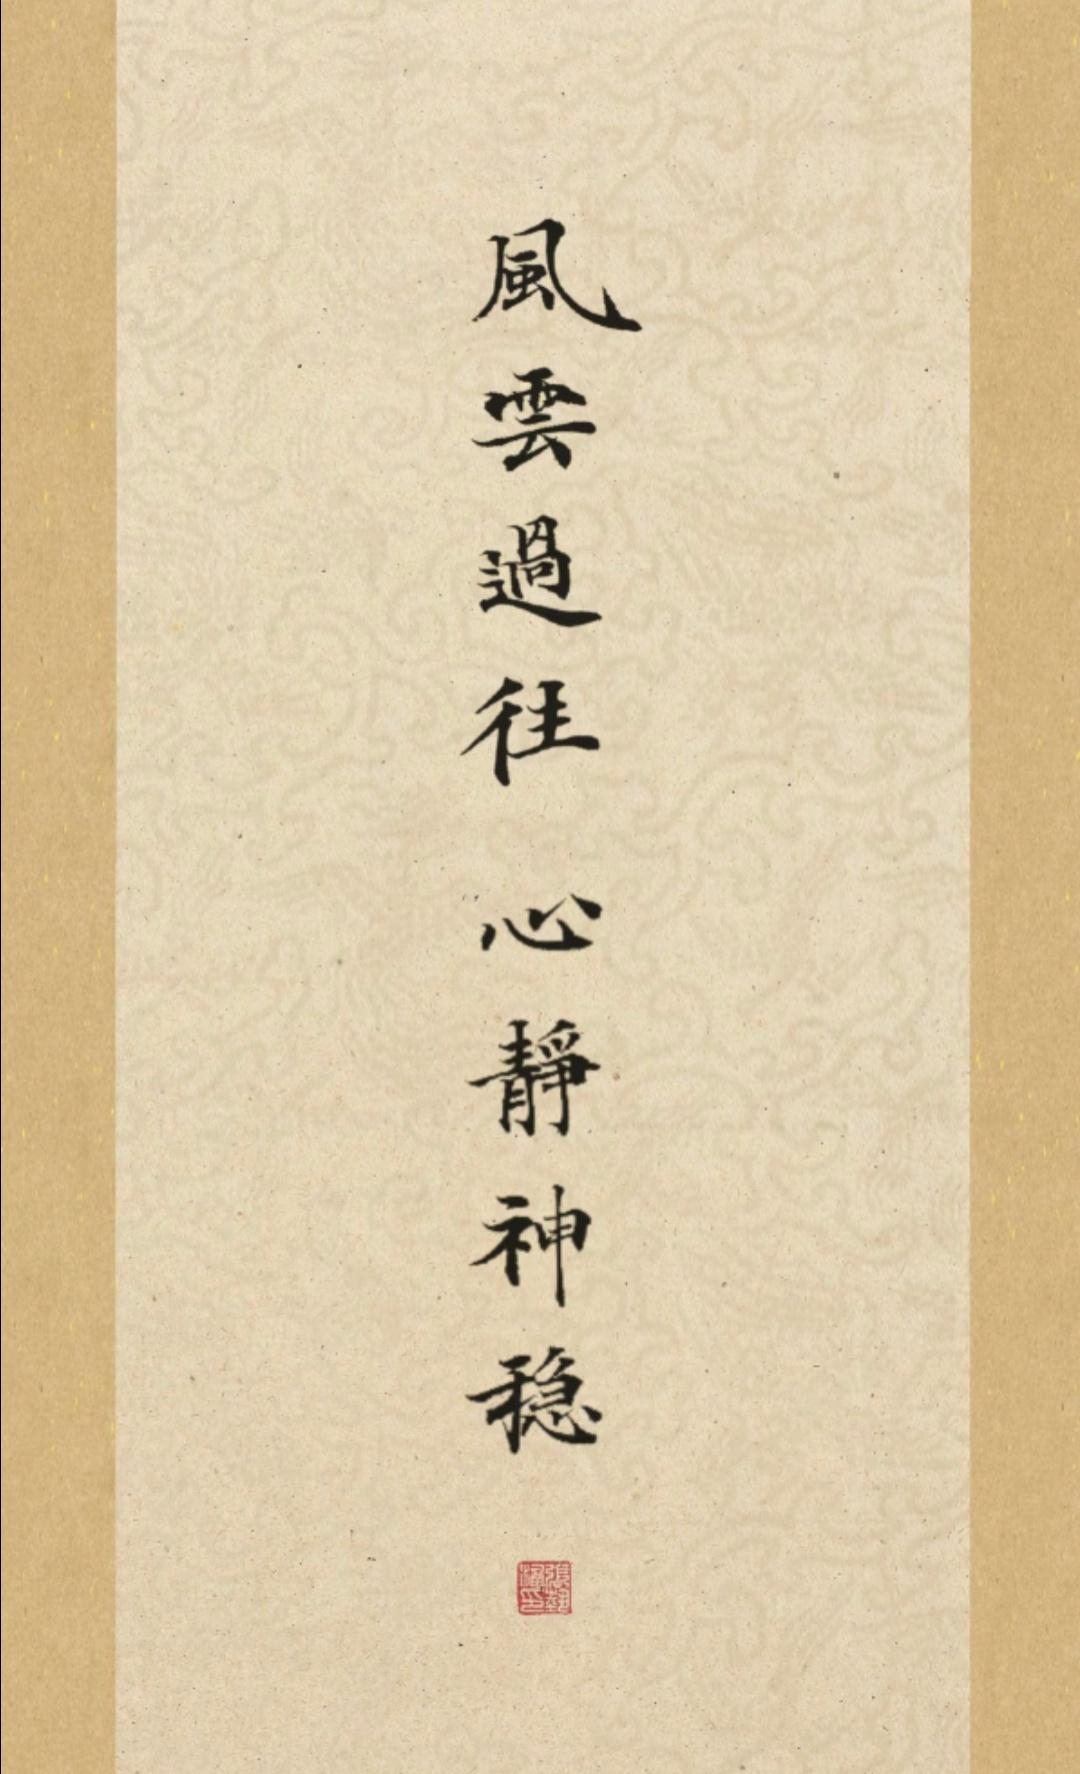 風雲過往 心靜神稳